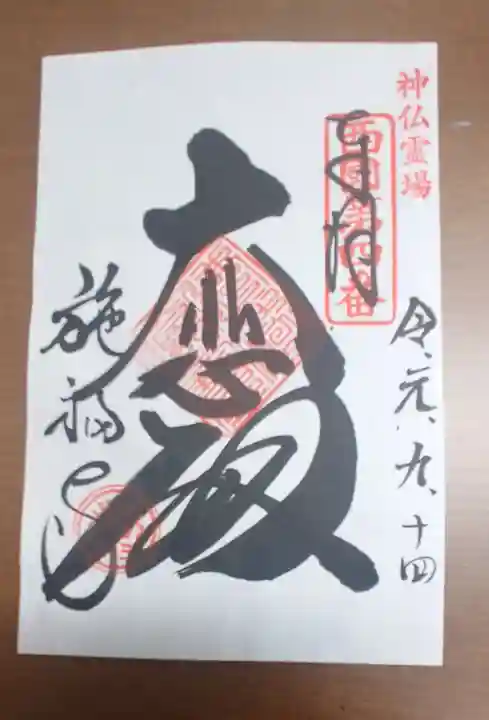 神仏霊場
西国第四番
奉拝
令元、九、十四
大悲殿
施福寺